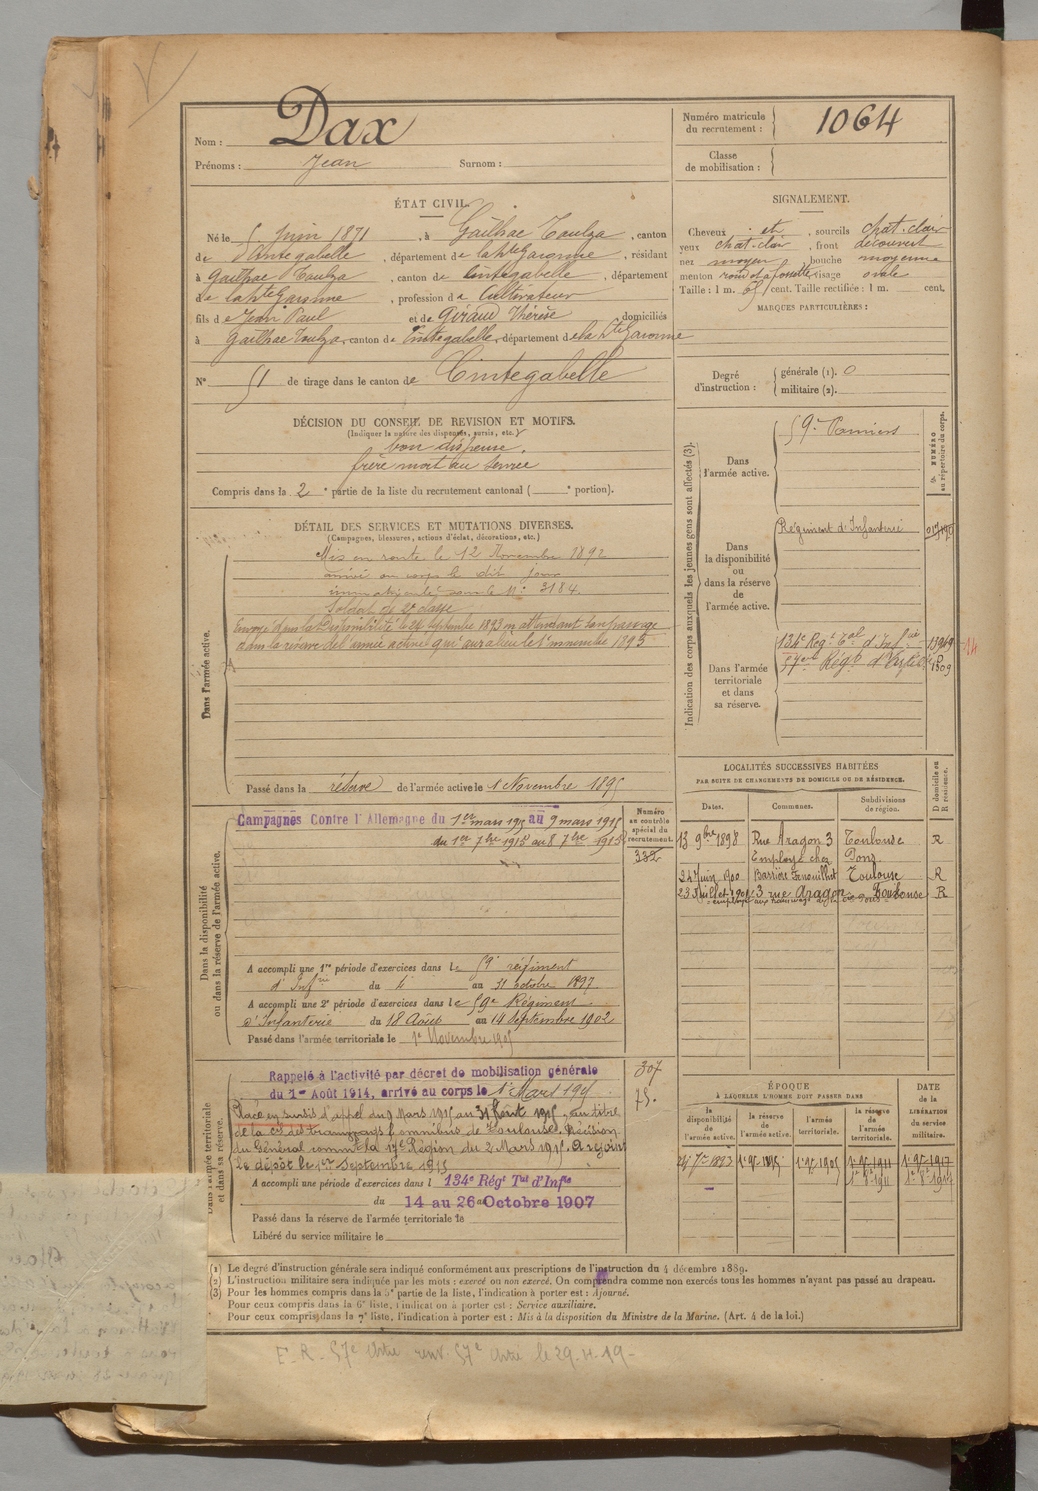 Nom : Dax
Prénoms : Jean Surnom :
Numéro matricule du recrutement : 1064
Classe de mobilisation :
ÉTAT CIVIL.
Né le 5 Juin 1871, à Gailhac Toulza, canton
de Cintegabelle, département de la Hte Garonne, résidant
à Gailhac Toulza, canton de Cintegabelle, département
de la Hte Garonne, profession de Cultivateur
fils de Jean Paul et de Giraud Thérèse domiciliés
à Gailhac Toulza, canton de Cintegabelle, département de la Hte Garonne
N° 51 de tirage dans le canton de Cintegabelle
SIGNALEMENT.
Cheveux : et, sourcils chat. clair
yeux chat. clair, front découvert
nez moyen, bouche moyenne
menton rond et à fossette, visage ovale
Taille : 1 m. 65 cent. Taille rectifiée : 1 m. cent.
MARQUES PARTICULIÈRES :
Degré d'instruction : générale (1). 0
militaire (2).
DÉCISION DU CONSEIL DE REVISION ET MOTIFS.
(Indiquer la nature des dispenses, sursis, etc.)
bon dispensé.
frère mort au service
Compris dans la 2e partie de la liste du recrutement cantonal ( e portion).
DÉTAIL DES SERVICES ET MUTATIONS DIVERSES.
(Campagnes, blessures, actions d'éclat, décorations, etc.)
Dans l'armée active.
Mis en route le 12 Novembre 1892
arrivé au corps le dit jour
immatriculé sous le N° 3184.
Soldat de 2e classe
Envoyé dans la Disponibilité le 24 Septembre 1893 en attendant son passage
dans la réserve de l'armée active qui aura lieu le 1er novembre 1895
Passé dans la réserve de l'armée active le 1 Novembre 1895
Indication des corps auxquels les jeunes gens sont affectés (3).
NUMÉRO au répertoire du corps.
Dans l'armée active.
59e Pamiers
Dans la disponibilité ou dans la réserve de l'armée active.
Régiment d'Infanterie
Dans l'armée territoriale et dans sa réserve.
134e Régt Tal d'Infrie
57eme Régt d'Artie
1309
LOCALITÉS SUCCESSIVES HABITÉES
PAR SUITE DE CHANGEMENTS DE DOMICILE OU DE RÉSIDENCE.
Dates. Communes. Subdivisions de région. D domicile ou R résidence.
13 9bre 1898 Rue Aragon 3 Toulouse R
Employé chez Pons
24 Juin 1900 Barrière Toulouse R
23 Juillet 1901 3 rue Aragon Toulouse R
Dans la disponibilité ou dans la réserve de l'armée active.
Numéro au contrôle spécial du recrutement.
332
Campagnes Contre l'Allemagne du 1er mars 1915 au 9 mars 1915
du 1er 7bre 1915 au 8 7bre 1915
A accompli une 1re période d'exercices dans le 59e régiment
d'Infrie du 4 au 31 octobre 1897
A accompli une 2e période d'exercices dans le 59e Régiment
d'Infanterie du 18 Août au 14 Septembre 1902
Passé dans l'armée territoriale le 1er Novembre 1905
Dans l'armée territoriale et dans sa réserve.
307
75.
Rappelé à l'activité par décret de mobilisation générale
du 1er Août 1914, arrivé au corps le 1er Mars 1915
Placé en sursis d'appel du 9 Mars 1915 au 31 Août 1915, au titre
de la Cie des tramways & omnibus de Toulouse. Décision
du Général commt la 17e Région du 2 Mars 1915. A rejoint
le dépôt le 1er Septembre 1915
A accompli une période d'exercices dans l 134e Régt Tal d'Infie
du 14 au 26 Octobre 1907
Passé dans la réserve de l'armée territoriale le
Libéré du service militaire le
ÉPOQUE
À LAQUELLE L'HOMME DOIT PASSER DANS
la disponibilité de l'armée active. la réserve de l'armée active. l'armée territoriale. la réserve de l'armée territoriale.
DATE de la LIBÉRATION du service militaire.
24 7re 1893 1er 9re 1895 1er 9re 1905 1er 9re 1911 1er 9re 1917
1er 8e 1911 1er 8e 1917
(1) Le degré d'instruction générale sera indiqué conformément aux prescriptions de l'instruction du 4 décembre 1889.
(2) L'instruction militaire sera indiquée par les mots : exercé ou non exercé. On comprendra comme non exercés tous les hommes n'ayant pas passé au drapeau.
(3) Pour les hommes compris dans la 5e partie de la liste, l'indication à porter est : Ajourné.
Pour ceux compris dans la 6e liste, l'indication à porter est : Service auxiliaire.
Pour ceux compris dans la 7e liste, l'indication à porter est : Mis à la disposition du Ministre de la Marine. (Art. 4 de la loi.)
E. R. 57e Artie renv. 57e Artie le 29.4.19-